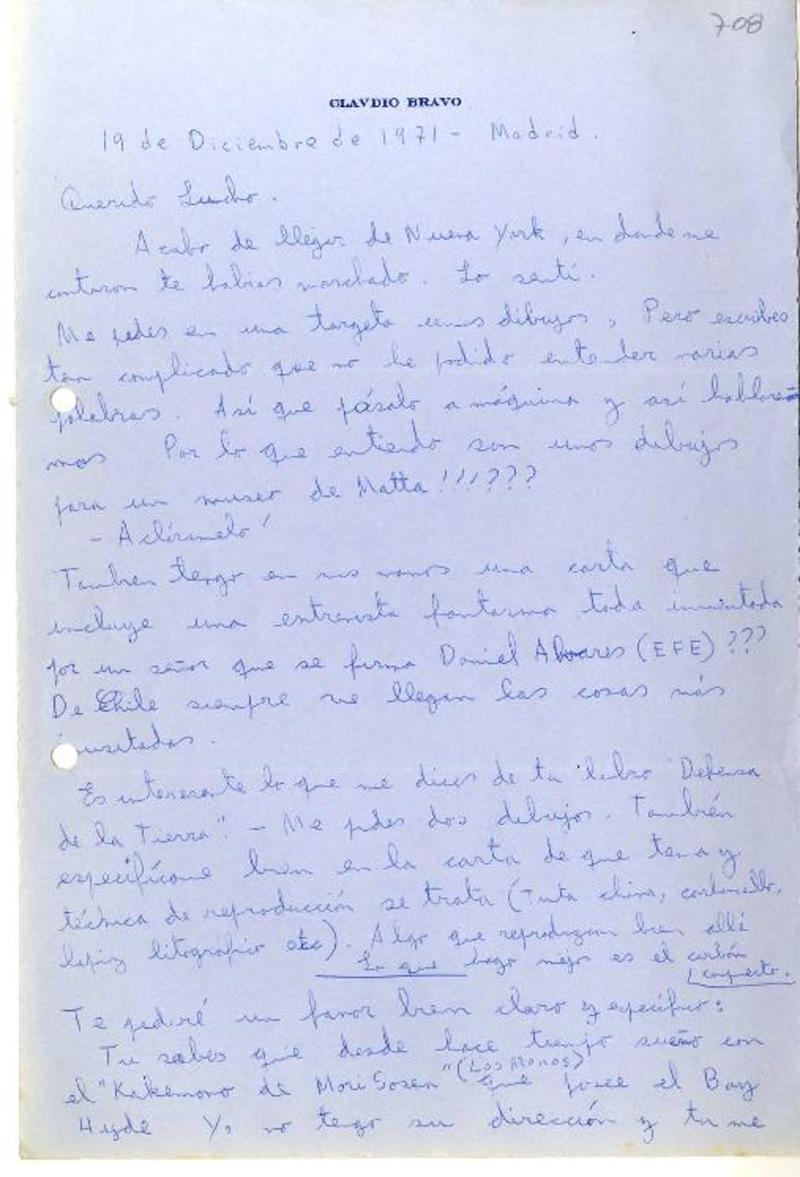 708
CLAVDIO BRAVO
19 de Diciembre de 1971 - Madrid.
Querido Lucho.
Acabo de llegar de Nueva York, en donde me
contaron te habias marchado. Lo sentí.
Me pides en una targeta unos dibujos, Pero escribes
tan complicado que no he podido entender varias
palabras. Así que pásalo a máquina y así hablare-
mos Por lo que entiendo son unos dibujos
para un museo de Matta!!!???
- Acláramelo!
Tambien tengo en mis manos una carta que
incluye una entrevista fantasma toda inventada
por un señor que se firma Daniel Alvares (EFE)???
De Chile siempre me llegan las cosas más
inusitadas.
Es interesante lo que me dices de tu libro "Defensa
de la Tierra". - Me pides dos dibujos. También
especifícame bien en la carta de que tema y
técnica de reproducción se trata (Tinta china, carboncillo,
lapiz litografico etc). Algo que reproduzcan bien allá
Lo que hago mejor es el carbón
compuesto.
Te pediré un favor bien claro y específico:
Tu sabes que desde hace tiempo sueño con
el "Kakemono de Mori Sosen" (Los Monos) que posee el Boy
Hyde Yo no tengo su dirección y tu me